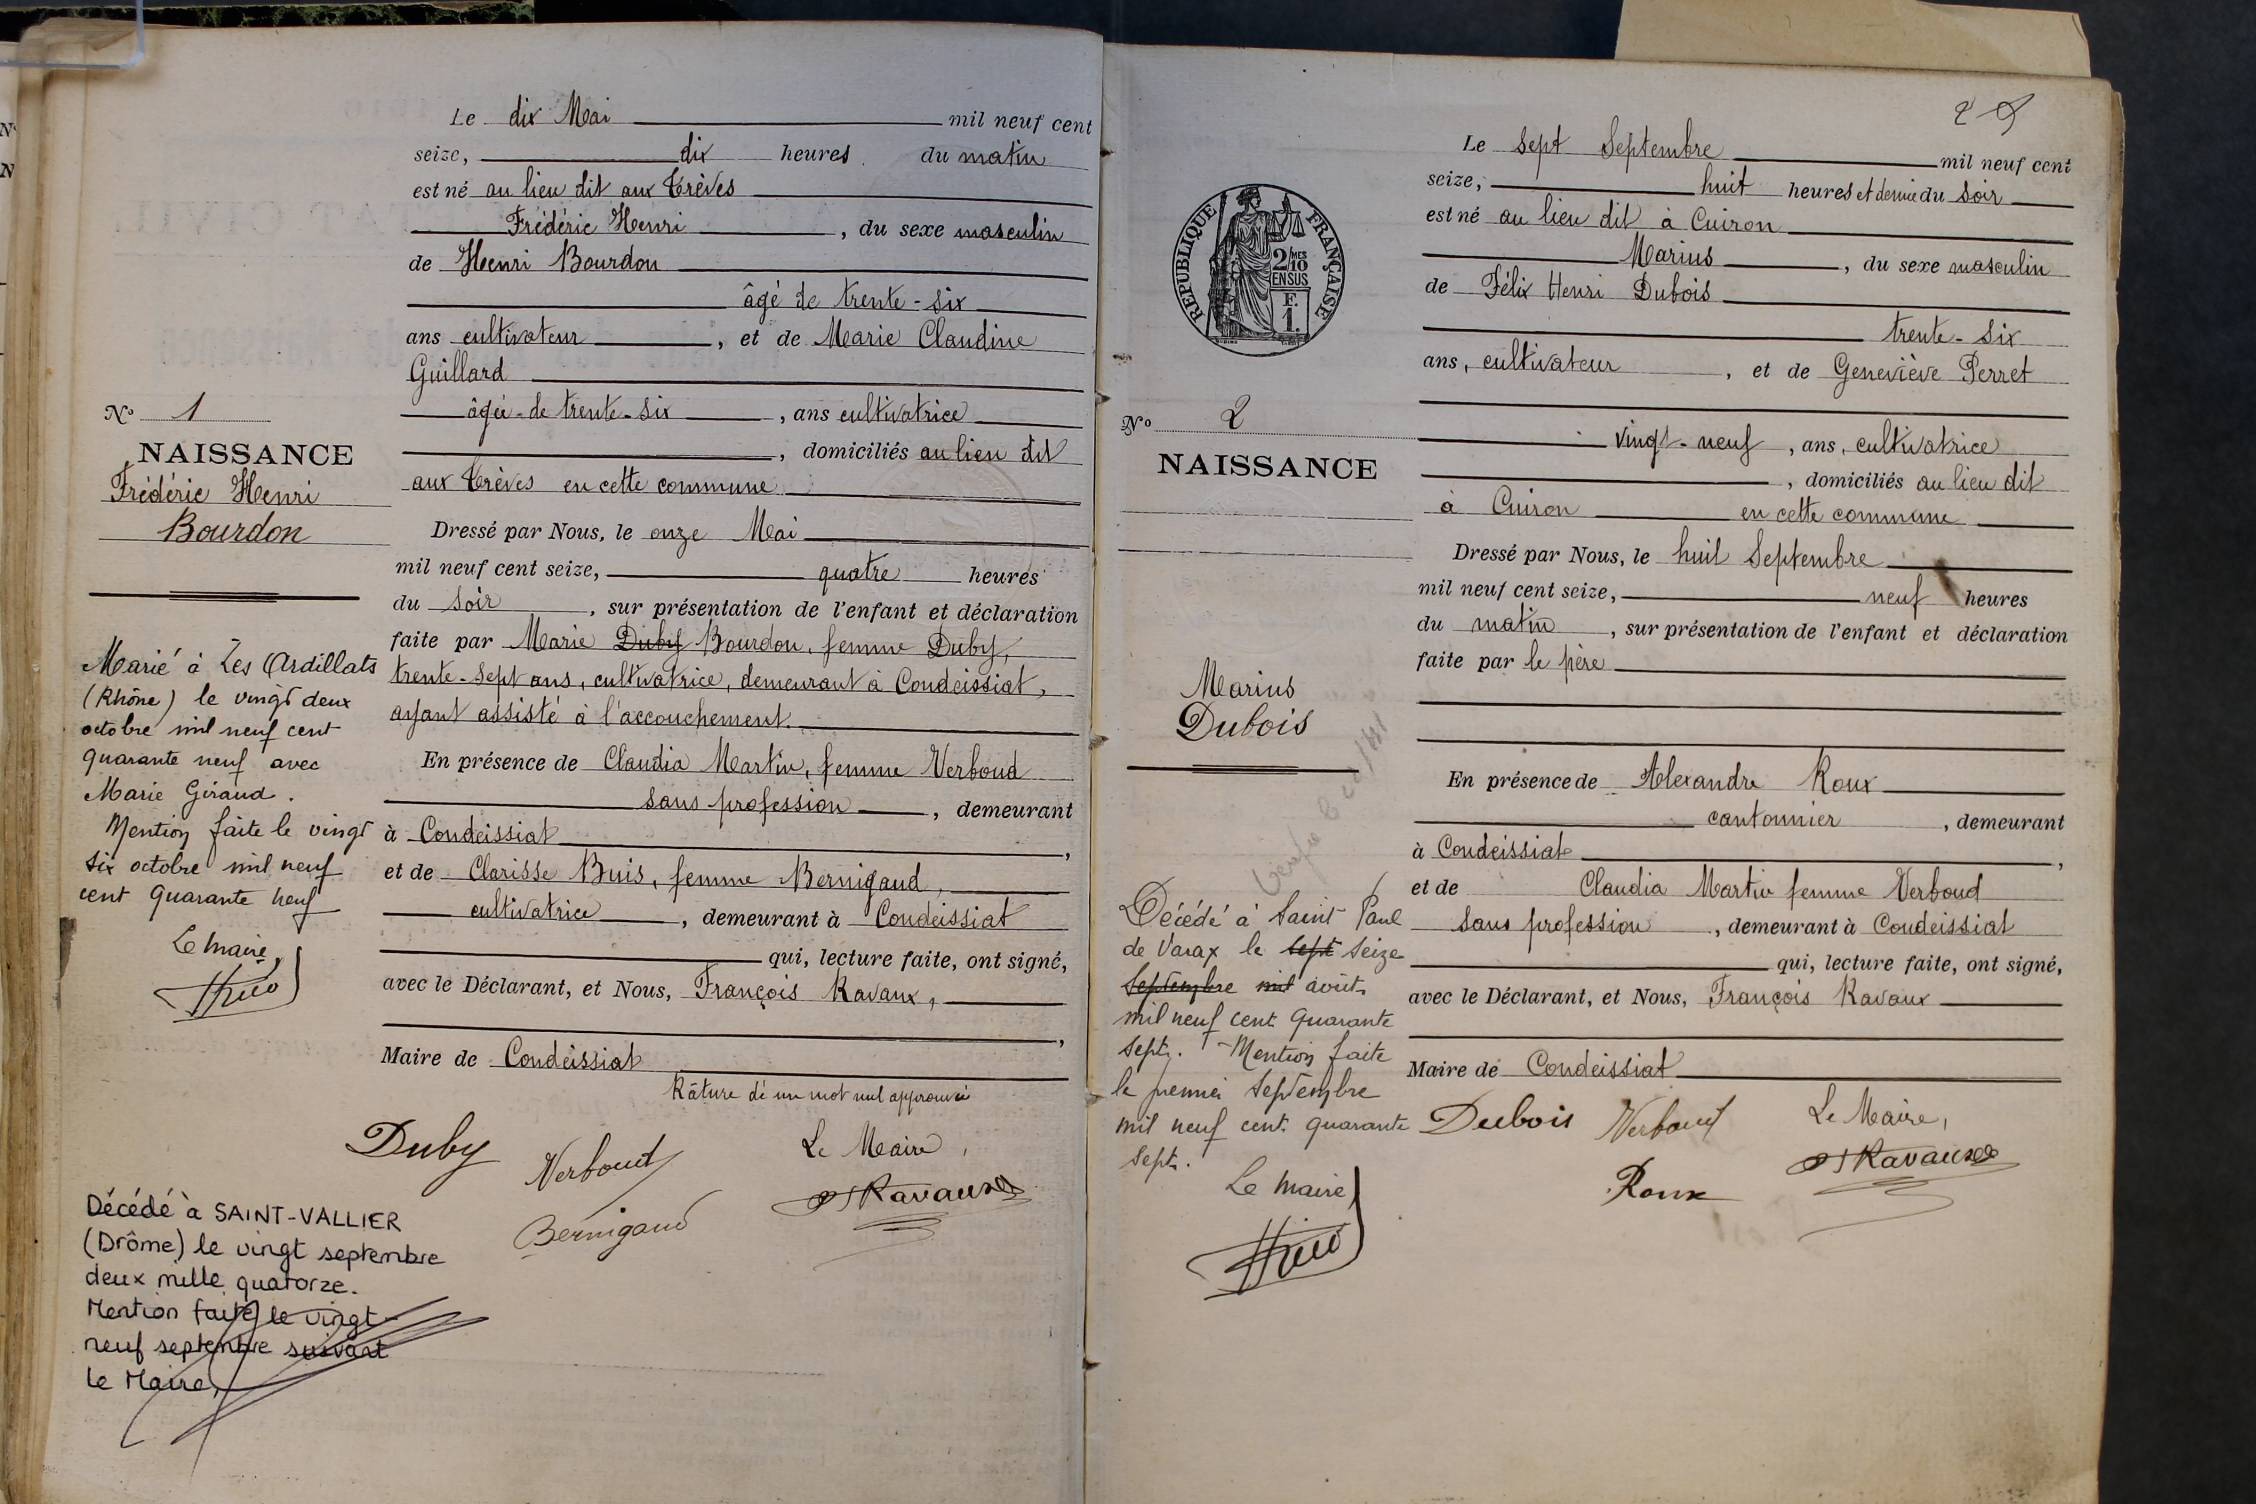 Le dix Mai mil neuf cent
seize, dix heures du matin
est né au lieu dit aux Crèves
Frédéric Henri, du sexe masculin
de Henri Bourdon
âgé de trente-six
ans cultivateur, et de Marie Claudine
Guillard
âgée de trente-six, ans cultivatrice
, domiciliés au lieu dit
aux Crèves en cette commune
Dressé par Nous, le onze Mai
mil neuf cent seize, quatre heures
du soir, sur présentation de l'enfant et déclaration
faite par Marie Duby Bourdon, femme Duby,
trente-sept ans, cultivatrice, demeurant à Condeissiat,
ayant assisté à l'accouchement.
En présence de Claudia Martin, femme Verboud
sans profession, demeurant
à Condeissiat,
et de Clarisse Buis, femme Bernigaud,
cultivatrice, demeurant à Condeissiat
qui, lecture faite, ont signé,
avec le Déclarant, et Nous, François Ravaux,
,
Maire de Condeissiat
Râture de un mot nul approuvée
Duby Verboud Le Maire,
Bernigaud Ravaux
Nº 1
NAISSANCE
Frédéric Henri
Bourdon
Marié à Les Ardillats
(Rhône) le vingt deux
octobre mil neuf cent
quarante neuf avec
Marie Giraud.
Mention faite le vingt
six octobre mil neuf
cent quarante neuf
Le maire,
Décédé à SAINT-VALLIER
(Drôme) le vingt septembre
deux mille quatorze.
Mention faite le vingt-
neuf septembre suivant
Le Maire,
2
Le sept Septembre mil neuf cent
seize, huit heures et demie du soir
est né au lieu dit à Cuiron
Marius, du sexe masculin
de Félix Henri Dubois
trente-six
ans, cultivateur, et de Geneviève Perret
vingt-neuf, ans, cultivatrice
, domiciliés au lieu dit
à Cuiron en cette commune
Dressé par Nous, le huit Septembre
mil neuf cent seize, neuf heures
du matin, sur présentation de l'enfant et déclaration
faite par le père
En présence de Alexandre Roux
cantonnier, demeurant
à Condeissiat,
et de Claudia Martin femme Verboud
sans profession, demeurant à Condeissiat
qui, lecture faite, ont signé,
avec le Déclarant, et Nous, François Ravaux
,
Maire de Condeissiat
Dubois Verboud Le Maire,
Roux Ravaux
RÉPUBLIQUE FRANÇAISE
2/10 MES
EN SUS
F.
1.
Nº 2
NAISSANCE
Marius
Dubois
Décédé à Saint Paul
de Varax le sept seize
Septembre mil août
mil neuf cent quarante
sept. Mention faite
le premier Septembre
mil neuf cent quarante
sept.
Le maire